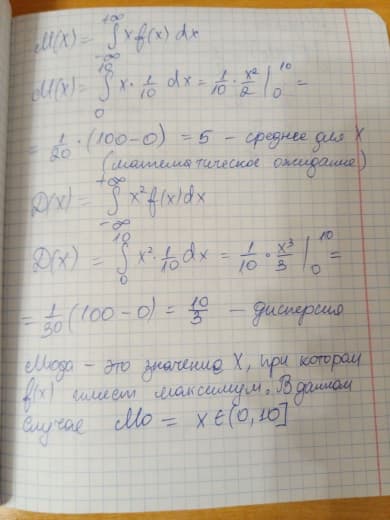 M(x) = ∫_{-∞}^{+∞} x f(x) dx
M(x) = ∫_0^{10} x · 1/10 dx = 1/10 · x²/2 |_0^{10} =
= 1/20 · (100 - 0) = 5 – среднее для X
(математическое ожидание)
D(x) = ∫_{-∞}^{+∞} x² f(x) dx
D(x) = ∫_0^{10} x² · 1/10 dx = 1/10 · x³/3 |_0^{10} =
= 1/30 (100 - 0) = 10/3 – дисперсия
Мода – это значение X, при котором
f(x) имеет максимум. В данном
случае Mo = x ∈ (0, 10]